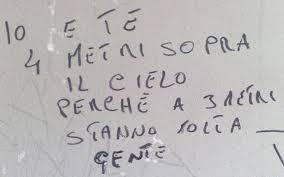 IO E TE
4 METRI SOPRA
IL CIELO
PERCHÈ A 3 METRI
STANNO SOLTA
GENTE